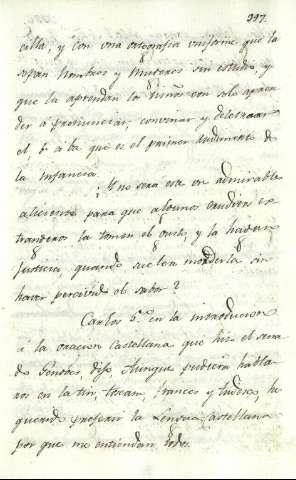 397.
cilla, y con una ortografia uniforme que la
sepan hombres y mugeres sin estudio, y
que la aprendan los niños con solo apren
der à pronunciar, convinar y deletrear
el, b à ba que es el primer rudimento de
la infancia.
¿Y no será este un admirable
aliciente para que algunos eruditos ex
trangeros la tomen el gusto, y la hagan
justicia, quando suelen morderla sin
haver percivido el sabor?
Carlos 5.to en la introducion
à la oracion Castellana que hizo el
de Genoves dijo Aunque pudiera habla
ros en latin, toscan, frances y tudesco, he
querido preferir la Lengua Castellana
por que me entiendan todos.